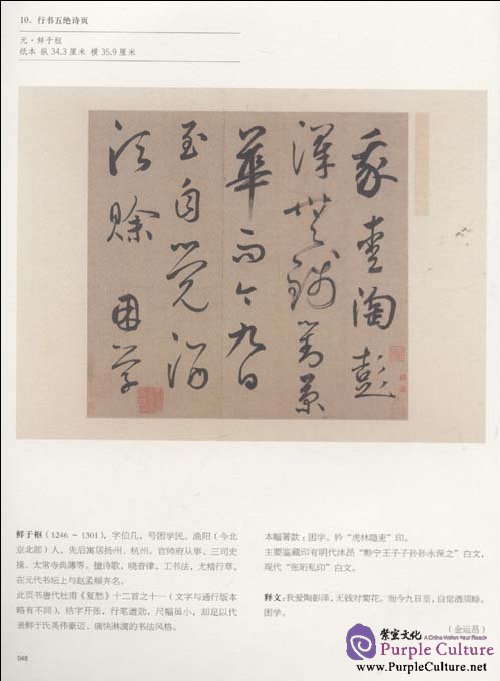 10. 行书五绝诗页
元·鲜于枢
纸本 纵 34.3 厘米 横 35.9 厘米
我愛陶彭
澤無錢對菊
華而今九日
至自覺酒
須賒 困學
鲜于枢(1246 ~ 1301),字伯几,号困学民。渔阳(今北
京北部)人,先后寓居扬州、杭州。官帅府从事、三司史
掾、太常寺典薄等。擅诗歌,晓音律,工书法,尤精行草,
在元代书坛与赵孟頫齐名。
此页书唐代杜甫《复愁》十二首之十一(文字与通行版本
略有不同)。结字开张,行笔遒劲,尺幅虽小,却足以代
表鲜于氏英伟豪迈,痛快淋漓的书法风格。
048
本幅署款:困学。钤“虎林隐吏”印。
主要鉴藏印有明代沐昂“黔宁王子子孙孙永保之”白文,
现代“张珩私印”白文。
释文:我爱陶彭泽,无钱对菊花。而今九日至,自觉酒须赊。
困学。
(金运昌)
紫宸文化
A China Widen Your Reach
Purple Culture
www.PurpleCulture.net